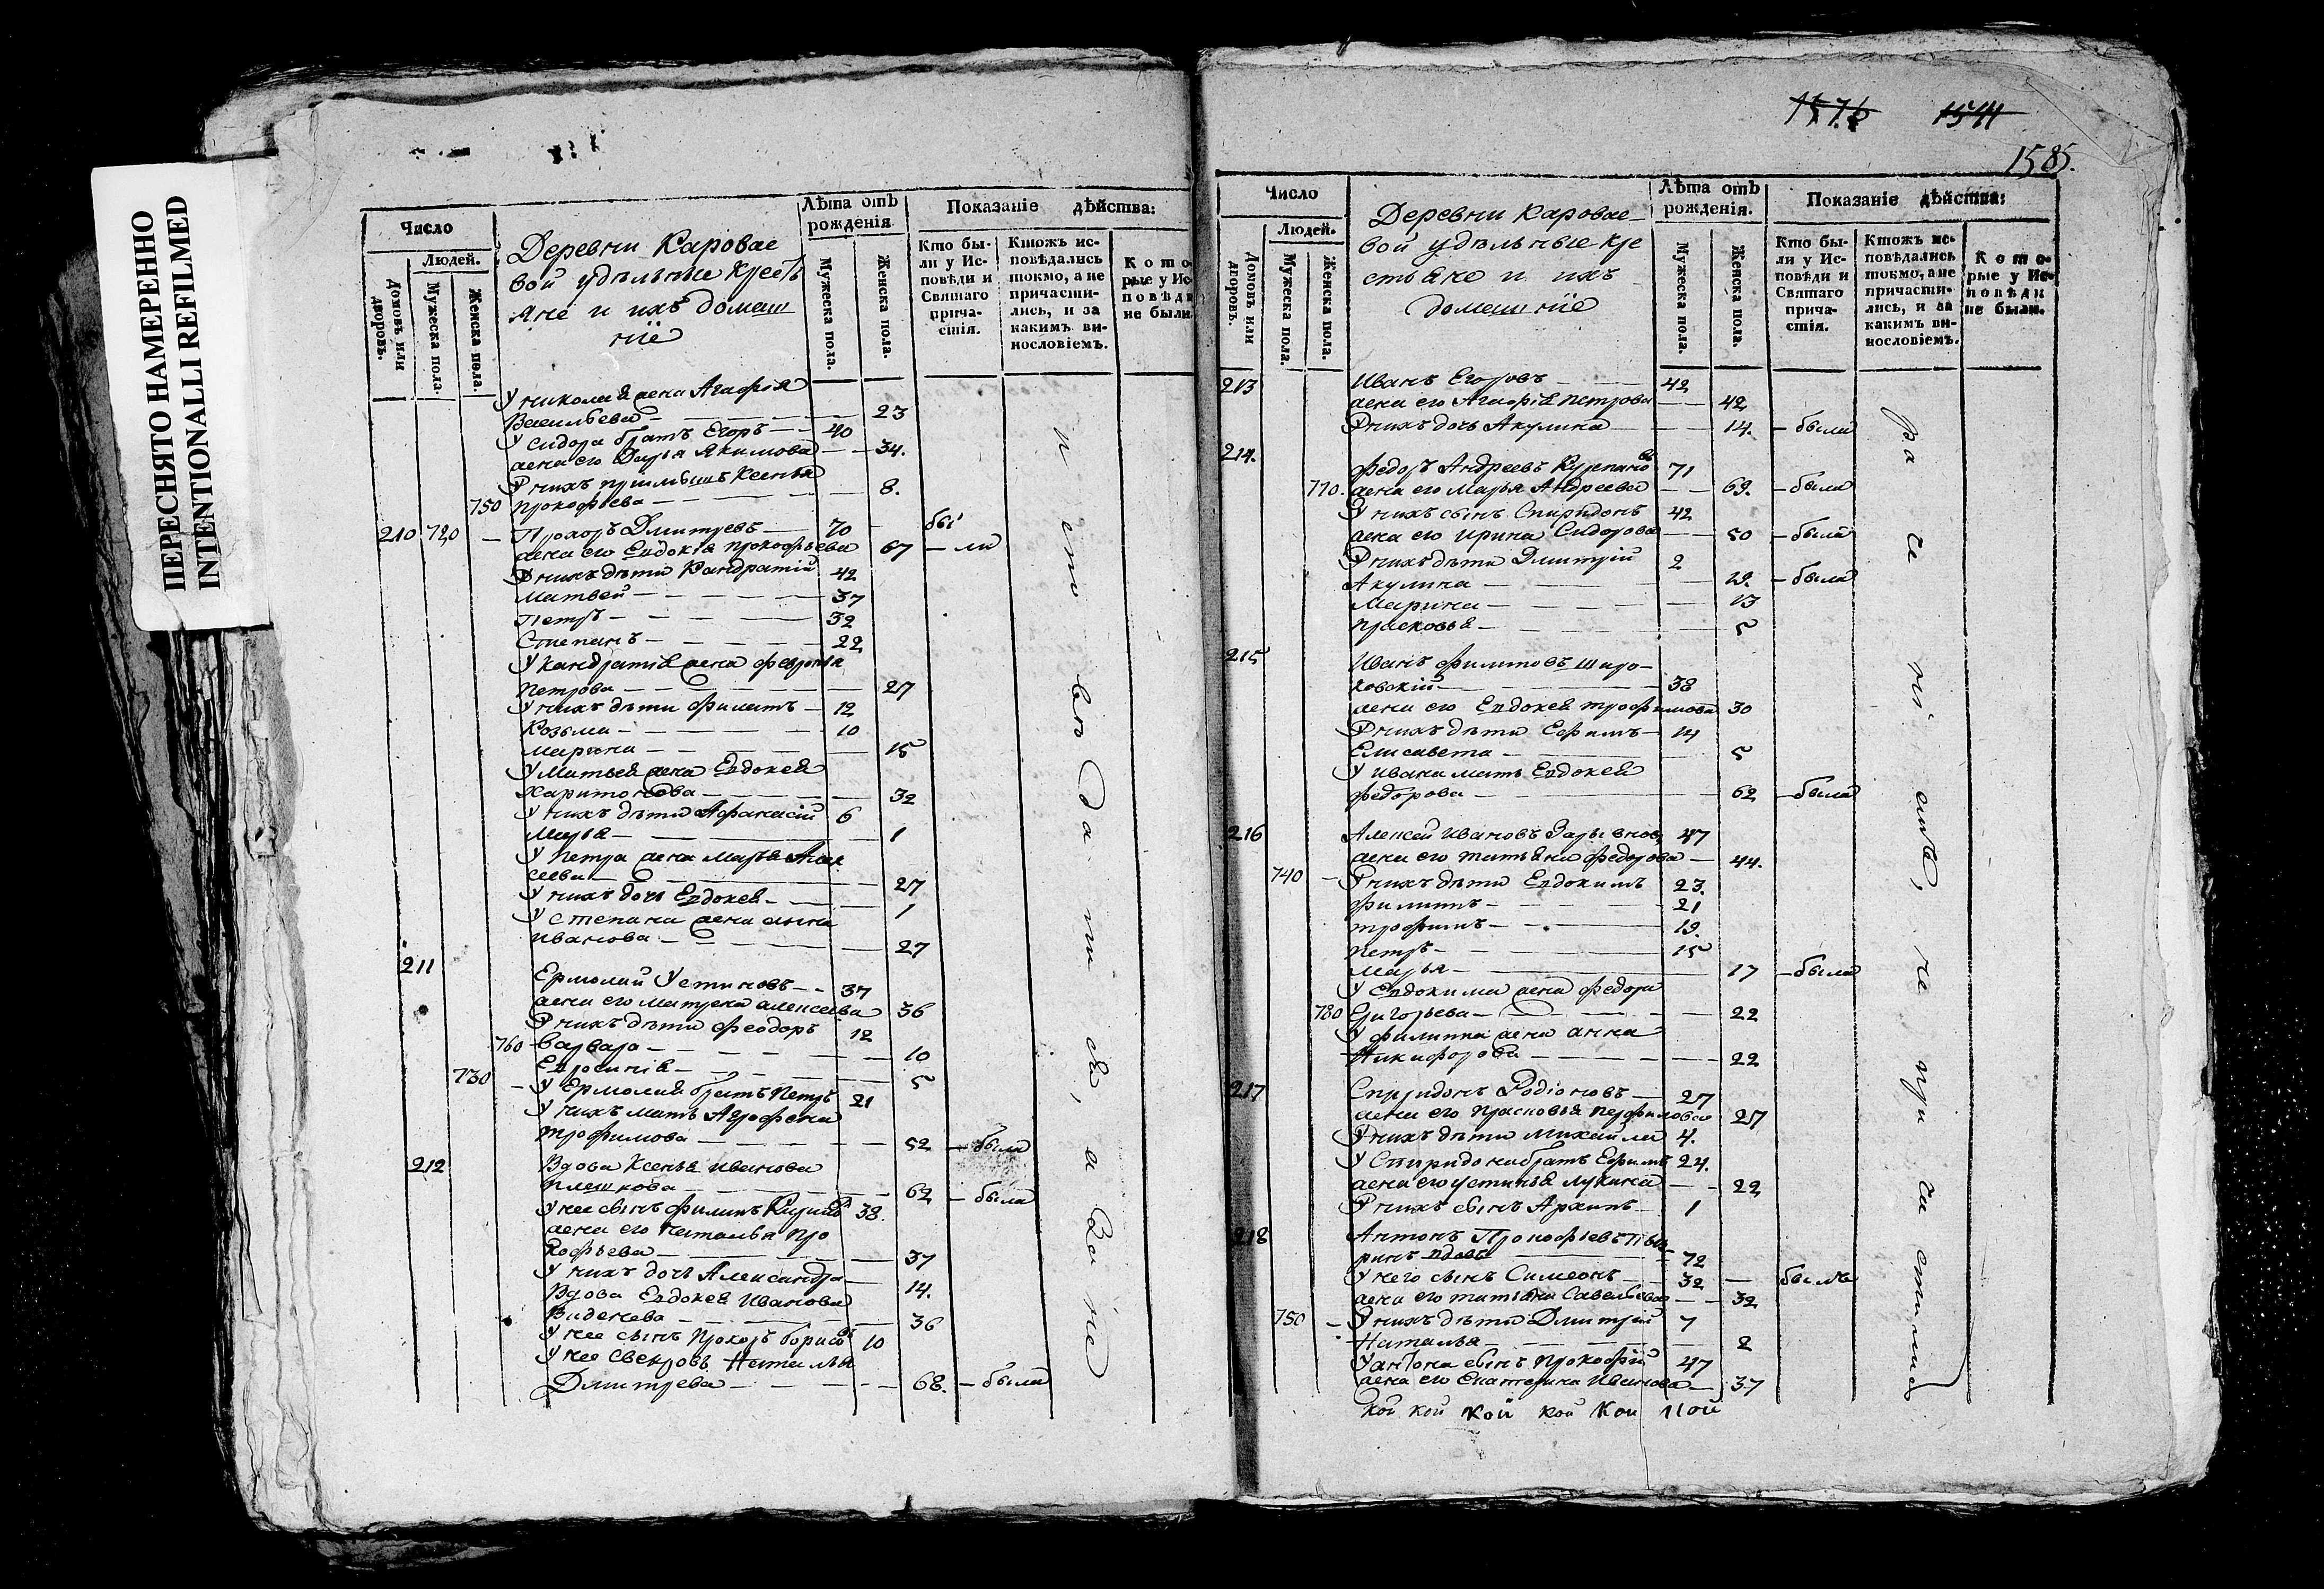 ПЕРЕСНЯТО НАМЕРЕННО
INTENTIONALLI REFILMED
Число
Людей.
Домовъ или дворовъ.
Мужеска пола.
Женска пола.
Деревни Каровае
вой удѣльные крестъ
яне и ихъ домаш
ніе
Лѣта отъ рожденія
Мужеска пола.
Женска пола.
Показаніе дѣйства:
Кто бы-
ли у Ис-
повѣди и
Святаго
прича-
стія.
Ктожъ ис-
повѣдались
токмо, а не
причасти-
лись, и за
какимъ ви-
нословіемъ.
Кото
рые у Ис
повѣди
не были
У николая жена Агафія
Васильева 23
У сидора братъ Егоръ 40
жена его Дарья Якимова 34.
У нихъ приимышъ Ксенья
750 прокофьева 8.
210 720 Прохоръ Дмитревъ 70 бы
жена его Евдокія прокофьева 67 ли
У нихъ дѣти Кандратій 42
Матвей 37
Петръ 32
Степанъ 22
У Кандратія жена февронья
петрова 27
У нихъ дѣти филатъ 12
Козьма 10
марина 15
У Матвея жена Евдокея
харитонова 32
У нихъ дѣти Афанасій 6
Марья 1
У петра жена марья Алек
сеева 27
У нихъ дочь Евдокея 1
У степана жена анна
иванова 27
211 Ермолай Устиновъ 37
жена его матрена алексеева 36
У нихъ дѣти феодоръ 12
760 варвара 10
Евросинія 5
730 У Ермолая братъ петръ 21
У нихъ мать Агрофена
трофимова 52 была
212 Вдова Ксенья иванова
плешкова 62 была
У нее сынъ филипъ 38.
жена его наталья про
кофьева 37
У нихъ дочь Александра 14.
Вдова Евдокея Иванова
Виденева 36
У нее сынъ прохоръ борисовъ 10
У нее свекровь Наталья
Дмитрева 68. была
исповѣдался, а за не
1576 1541
1585.
Число
Людей.
Домовъ или дворовъ.
Мужеска пола.
Женска пола.
Деревни Каровае
вой удѣльные кре
стьяне и ихъ
домашніе
Лѣта отъ рожденія.
Мужеска пола.
Женска пола.
Показаніе дѣйства:
Кто бы-
ли у Ис-
повѣди и
Святаго
прича-
стія.
Ктожъ ис-
повѣдались
токмо, а не
причасти-
лись, и за
какимъ ви-
нословіемъ.
Кото-
рые у Ис-
повѣди
не были.
213 Иванъ Егоровъ 42
жена его Агафія петрова 42
У нихъ дочь Акулина 14. была
214. федоръ Андреевъ Курепановъ 71
770. жена его Марья Андреева 69. была
У нихъ сынъ Спиридонъ 42
жена его ирина Сидорова 50 была
У нихъ дѣти Дмитрій 2
Акулина 19. была
Марина 13
прасковья 5
215 Иванъ филиповъ широ-
ковскій 38
жена его Евдокея трофимова 30
У нихъ дѣти Ефимъ 14
Елисавета 5
У ивана мать Евдокея
федорова 62 была
216 Алексей ивановъ Зарывновъ 47
жена его татьяна федорова 44.
740 У нихъ дѣти Евдокимъ 23.
филипъ 21
трофимъ 19.
петръ 15
Марья 17 была
У Евдокима жена федора
780 Григорьева 22
У филиппа жена анна
Никифорова 22
217 Спиридонъ Родіоновъ 27
жена его прасковья перфилова 27
У нихъ дѣти михайла 4.
У Спиридона братъ Ефимъ 24.
жена его устинья лукина 22
У нихъ сынъ Архипъ 1
218 Антонъ Прокофьевъ
ринъ вдовъ 72
У него сынъ Симеонъ 32 былъ
жена его татьяна Савельева 32
750 У нихъ дѣти Дмитрій 7
Наталья 2
У антона сынъ прокофій 47
жена его Екатерина иванова 37
кой кой кой кой кои
раченіемъ, не причастились